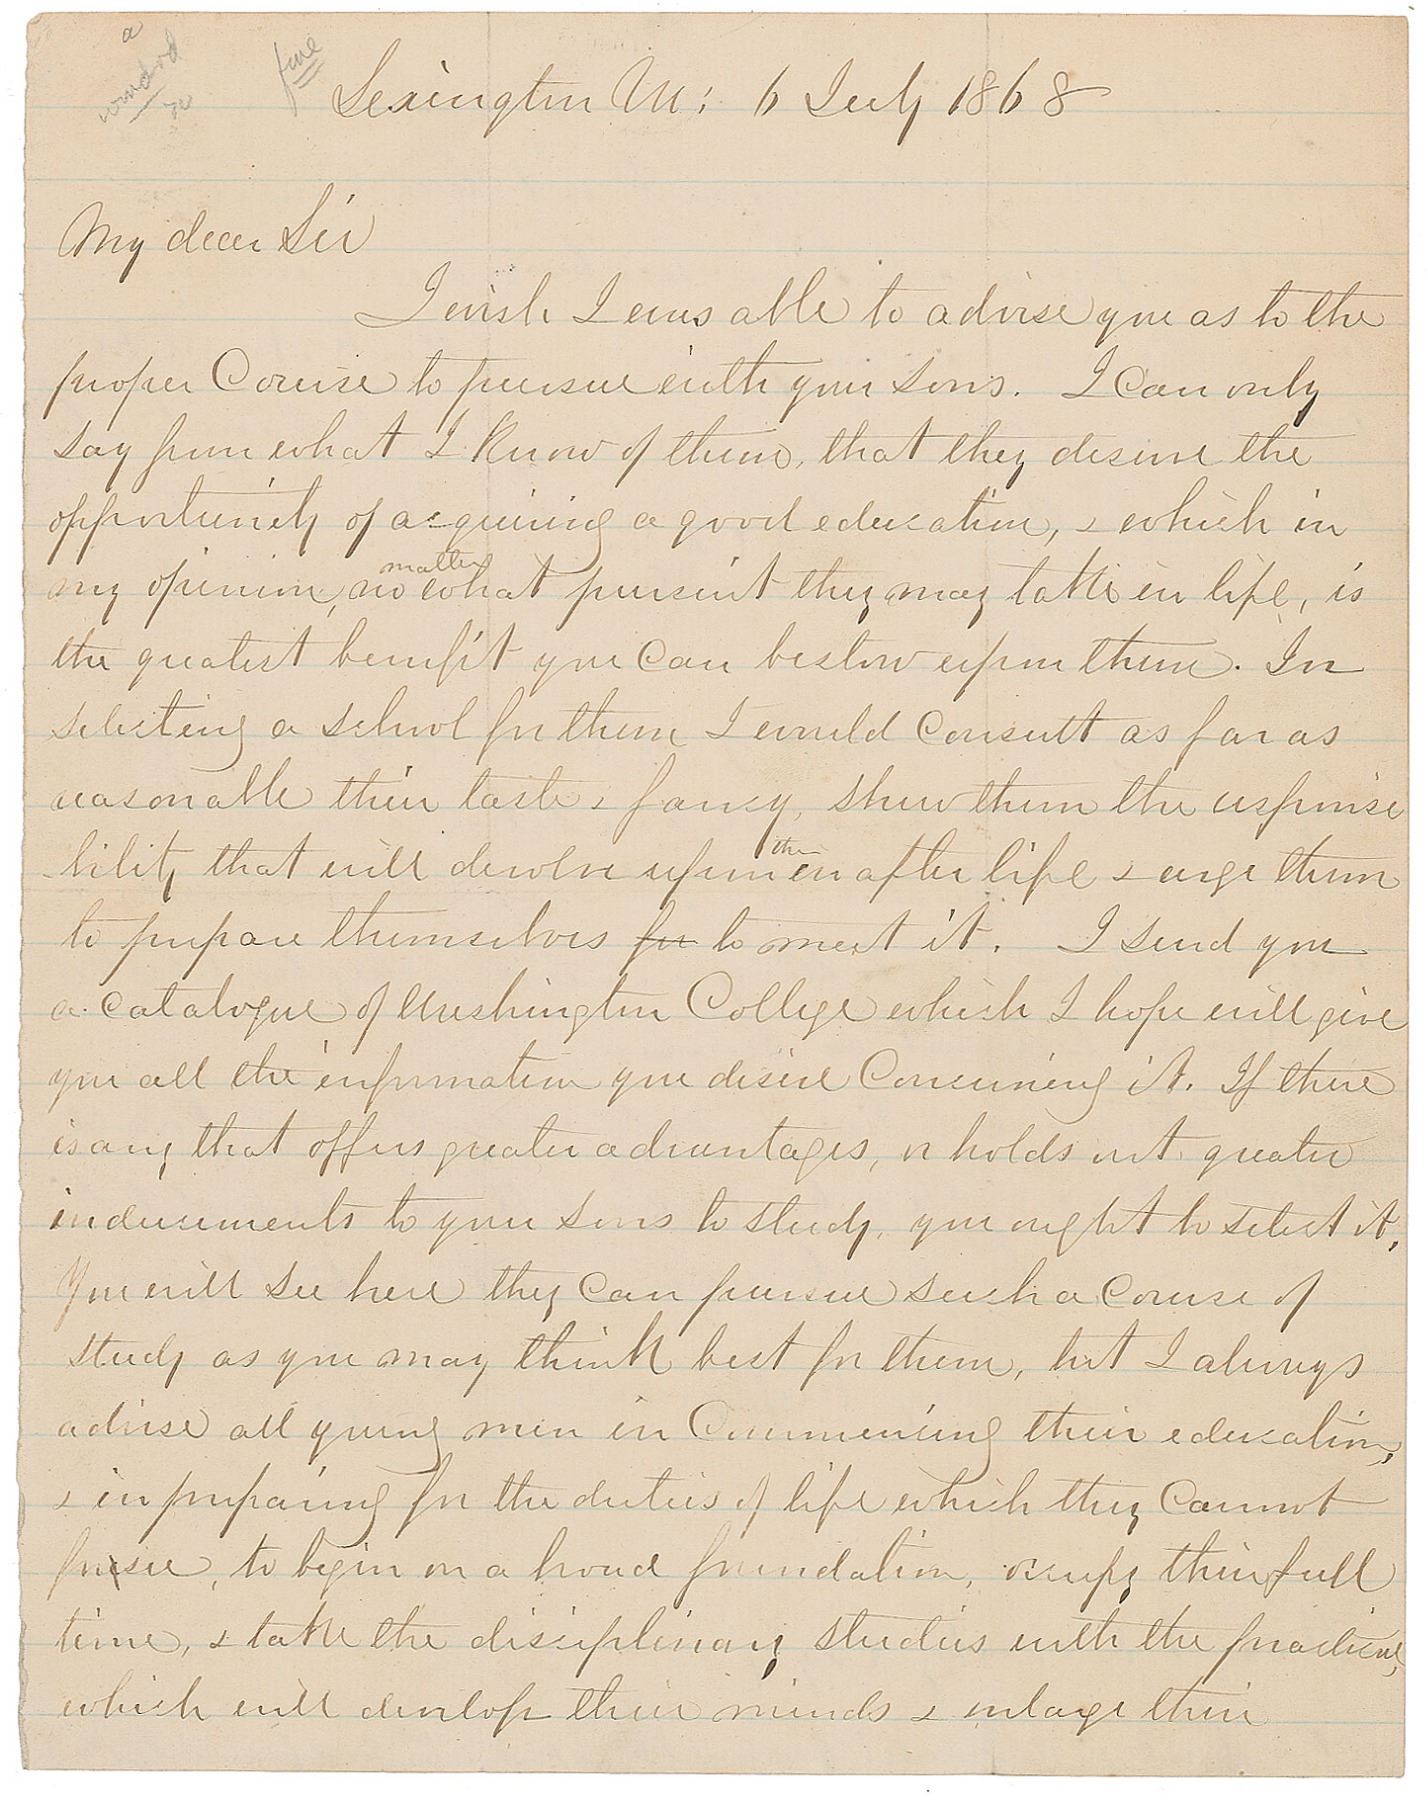 fine
Lexington Va: 6 July 1868
My dear Sir
I wish I was able to advise you as to the
proper Course to pursue with your sons. I Can only
say from what I know of them, that they desire the
opportunity of acquiring a good education, & which in
my opinion, no matter what pursuit they may take in life, is
the greatest benefit you Can bestow upon them. In
selecting a school for them I would Consult as far as
reasonable their taste & fancy, shew them the responsi
bility that will devolve upon them in after life & urge them
to prepare themselves for to meet it. I send you
a Catalogue of Washington College which I hope will give
you all the information you desire Concerning it. If there
is any that offers greater advantages, or holds out greater
inducements to your sons to study, you ought to select it,
You will see here they Can pursue such a Course of
study as you may think best for them, but I always
advise all young men in Commencing their education,
& in preparing for the duties of life which they Cannot
foresee, to begin on a broad foundation, occupy their full
time, & take the disciplinary studies with the practical,
which will develop their minds & enlarge their